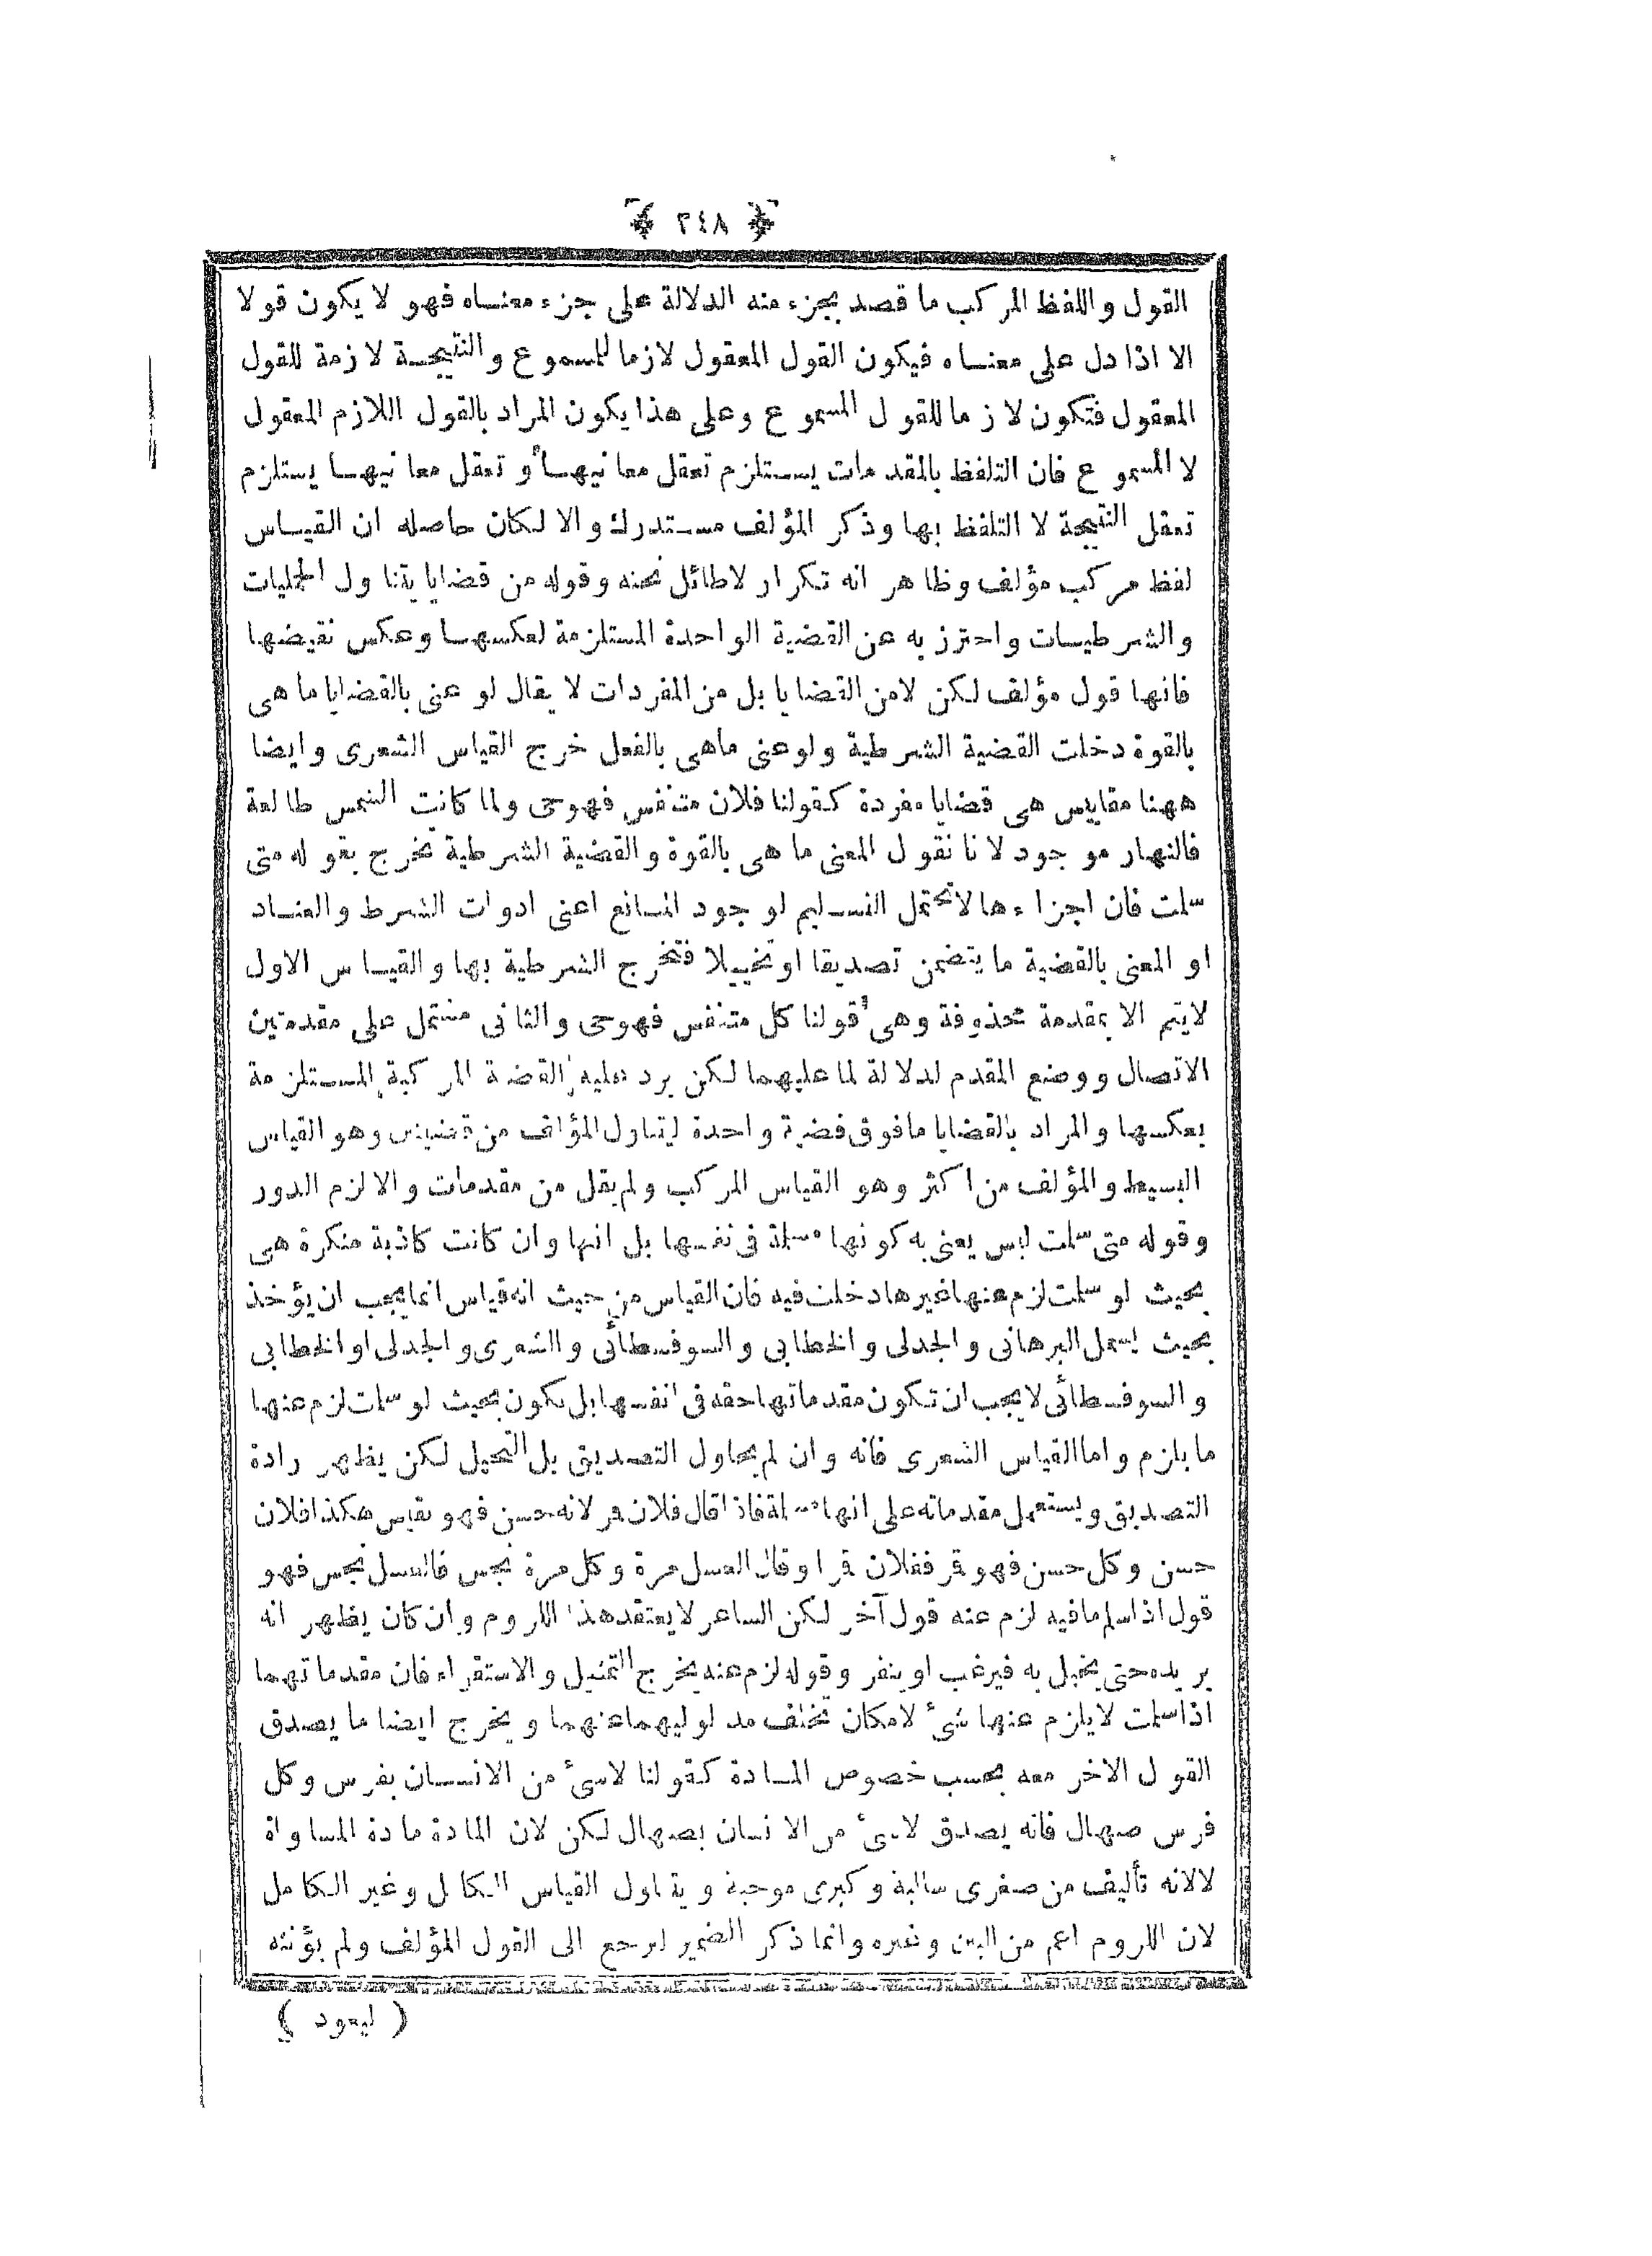 ٢٤٨
القول واللفظ المركب ما قصد بجزء منه الدلالة على جزء معناه فهو لا يكون قولا
الا اذا دل على معناه فيكون القول المعقول لازما للمسموع والنتيجة لازمة للقول
المعقول فتكون لازما للقول المسموع وعلى هذا يكون المراد بالقول اللازم المعقول
لا المسموع فان التلفظ بالمقدمات يستلزم تعقل معانيها و تعقل معانيها يستلزم
تعقل النتيجة لا التلفظ بها وذكر المؤلف مستدرك والا لكان حاصله ان القياس
لفظ مركب مؤلف وظاهر انه تكرار لاطائل تحته وقوله من قضايا يتناول الحمليات
والشرطيات واحترز به عن القضية الواحدة المستلزمة لعكسها وعكس نقيضها
فانها قول مؤلف لكن لامن القضايا بل من المفردات لا يقال لو عنى بالقضايا ما هى
بالقوة دخلت القضية الشرطية ولوعنى ماهى بالفعل خرج القياس الشعرى وايضا
ههنا مقاييس هى قضايا مفردة كقولنا فلان متنفس فهوحى ولما كانت الشمس طالعة
فالنهار موجود لانا نقول المعنى ما هى بالقوة والقضية الشرطية تخرج بقوله متى
سلمت فان اجزاءها لاتحتمل التسليم لوجود المانع اعنى ادوات الشرط والعناد
او المعنى بالقضية ما يتضمن تصديقا او تخييلا فتخرج الشرطية بها والقياس الاول
لايتم الا بمقدمة محذوفة وهى قولنا كل متنفس فهوحى والثانى مشتمل على مقدمتين
الاتصال ووضع المقدم لدلالة لما عليهما لكن يرد عليه القضية المركبة المستلزمة
بعكسها والمراد بالقضايا مافوق قضية واحدة ليتناول المؤلف من قضيتين وهو القياس
البسيط والمؤلف من اكثر وهو القياس المركب ولم يقل من مقدمات والا لزم الدور
وقوله متى سلمت ليس يعنى به كونها مسلمة فى نفسها بل انها وان كانت كاذبة منكرة هى
بحيث لو سلمت لزم عنها غيرها دخلت فيه فان القياس من حيث انه قياس انما يجب ان يؤخذ
بحيث يشمل البرهانى والجدلى والخطابى والسوفسطائى والشعرى والجدلى او الخطابى
والسوفسطائى لا يجب ان تكون مقدماتها حقه فى انفسها بل يكون بحيث لو سلمت لزم عنها
ما يلزم واما القياس الشعرى فانه وان لم يحاول التصديق بل التخيل لكن يظهر رادة
التصديق ويستعمل مقدماته على انها مسلمة فاذا قال فلان قمر لانه حسن فهو يقيس هكذا فلان
حسن وكل حسن فهو قمر ففلان قمر او قال العسل مرة وكل مرة نجس فالعسل نجس فهو
قول اذا سلم مافيه لزم عنه قول آخر لكن الشاعر لا يعتقد هذا اللزوم وان كان يظهر انه
يريده حتى يخيل به فيرغب او ينفر وقوله لزم عنه يخرج التمثيل والاستقراء فان مقدماتهما
اذا سلمت لايلزم عنها شئ لامكان تخلف مدلوليهما عنهما ويخرج ايضا ما يصدق
القول الاخر معه بحسب خصوص المادة كقولنا لاشئ من الانسان بفرس وكل
فرس صهال فانه يصدق لاشئ من الانسان بصهال لكن لان المادة مادة المساواة
لالانه تأليف من صغرى سالبة وكبرى موجبة ويتناول القياس الكامل وغير الكامل
لان اللزوم اعم من البين وغيره وانما ذكر الضمير ليرجع الى القول المؤلف ولم يؤنثه
( ليعود )